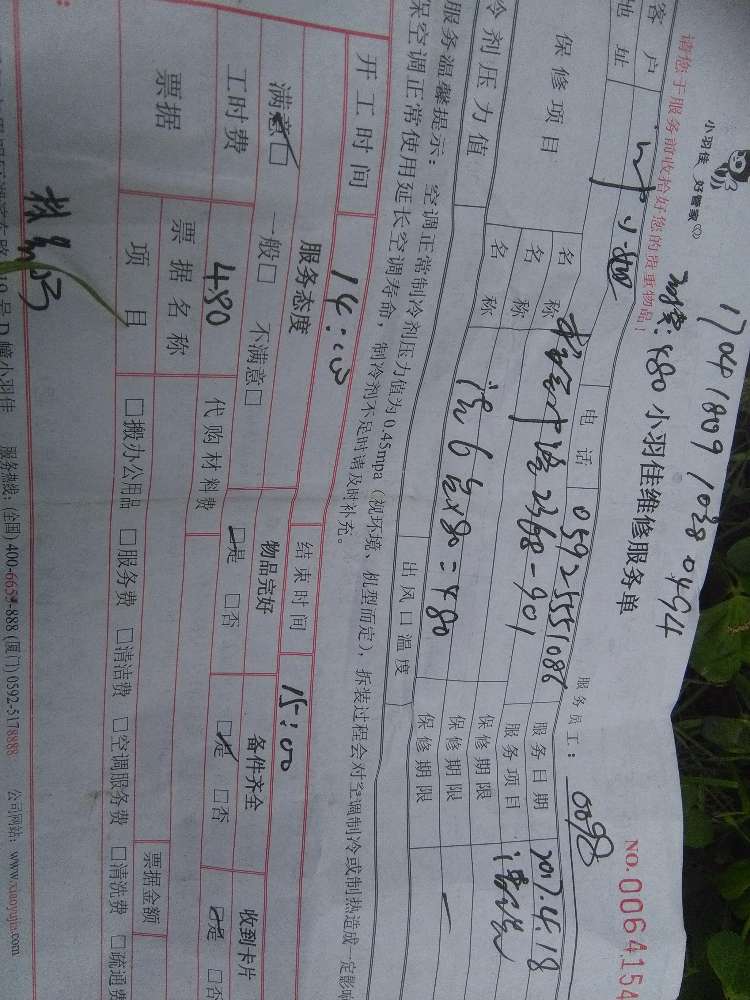 小羽佳 好管家
17041809 1038 0494
请您于服务前收拾好您的贵重物品！
480 小羽佳维修服务单
NO.0064154
服务员工： 0098
客户 叶小姐 电话 05925551086 服务日期 2017.4.18
地址 2368-901 服务项目
保修项目
名称 洗6台×80=480 保修期限
名称 保修期限
名称 保修期限
冷剂压力值 出风口温度
服务温馨提示：空调正常制冷剂压力值为0.45mpa（视环境、机型而定），拆装过程会对空调制冷或制热造成一定影响
保空调正常使用延长空调寿命，制冷剂不足时请及时补充。
开工时间 14:00 结束时间 15:00
服务态度 物品完好 备件齐全 收到卡片
满意□ 一般□ 不满意□ □是 □否 □是 □否 □是 □否
工时费 480 代购材料费
票据 票据名称 票据金额
项目 □搬办公用品 □服务费 □清洁费 □空调服务费 □清洗费 □疏通费
号D幢小羽佳 服务热线：(全国) 400-6659-888 (厦门) 0592-5178888 公司网站：www.xiaoyujia.com